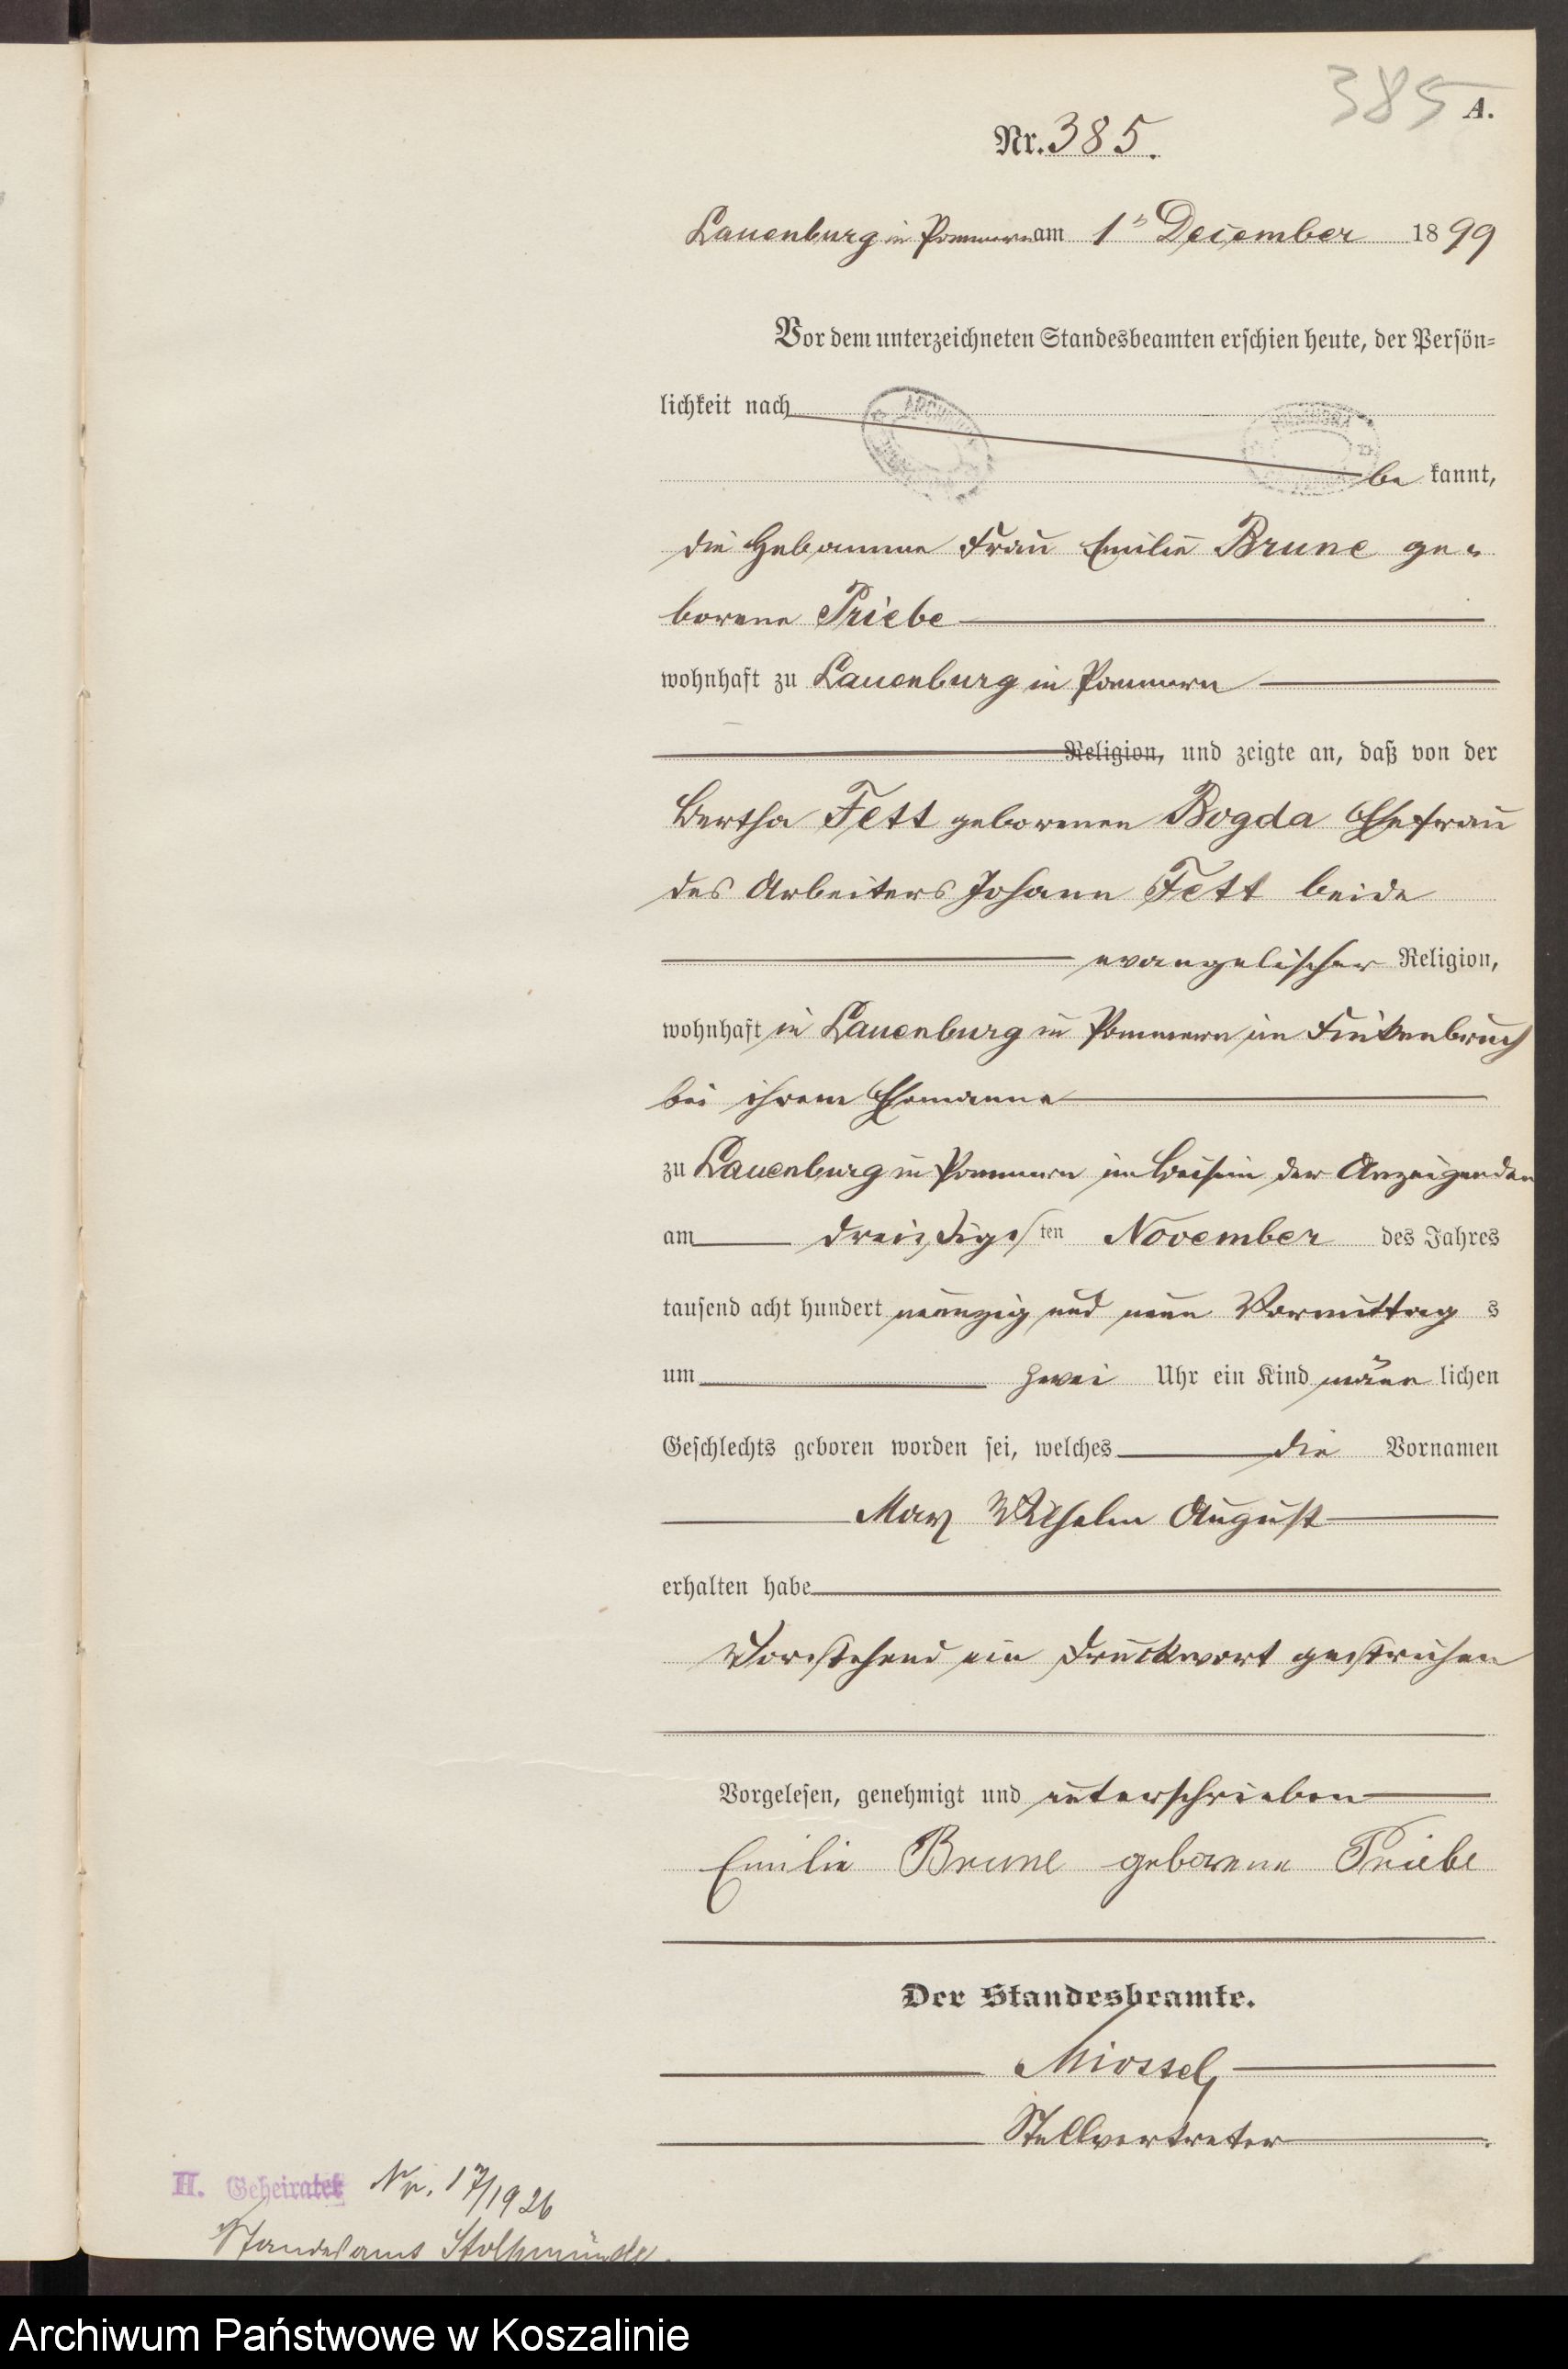 385
A.
Nr. 385.
Lauenburg in Pommern am 1ⁿ December 1899
Vor dem unterzeichneten Standesbeamten erschien heute, der Persön-
lichkeit nach
be kannt,
die Hebamme Frau Emilie Brune ge-
borene Priebe
wohnhaft zu Lauenburg in Pommern
Religion, und zeigte an, daß von der
Bertha Fett geborenen Bogda Ehefrau
des Arbeiters Johann Fett beide
evangelischer Religion,
wohnhaft in Lauenburg in Pommern im Finkenbruch
bei ihrem Ehemanne
zu Lauenburg in Pommern im Beisein der Anzeigenden
am dreizsigsten November des Jahres
tausend acht hundert neunzig und neun Vormittags
um zwei Uhr ein Kind männlichen
Geschlechts geboren worden sei, welches die Vornamen
Max Wilhelm August
erhalten habe
Vorstehend ein Druckwort gestrichen
Vorgelesen, genehmigt und unterschrieben
Emilie Brune geborene Priebe
Der Standesbeamte.
Stellvertreter
H. Geheiratet Nr. 17/1926
Standesamt Stolpmünde.
Archiwum Państwowe w Koszalinie